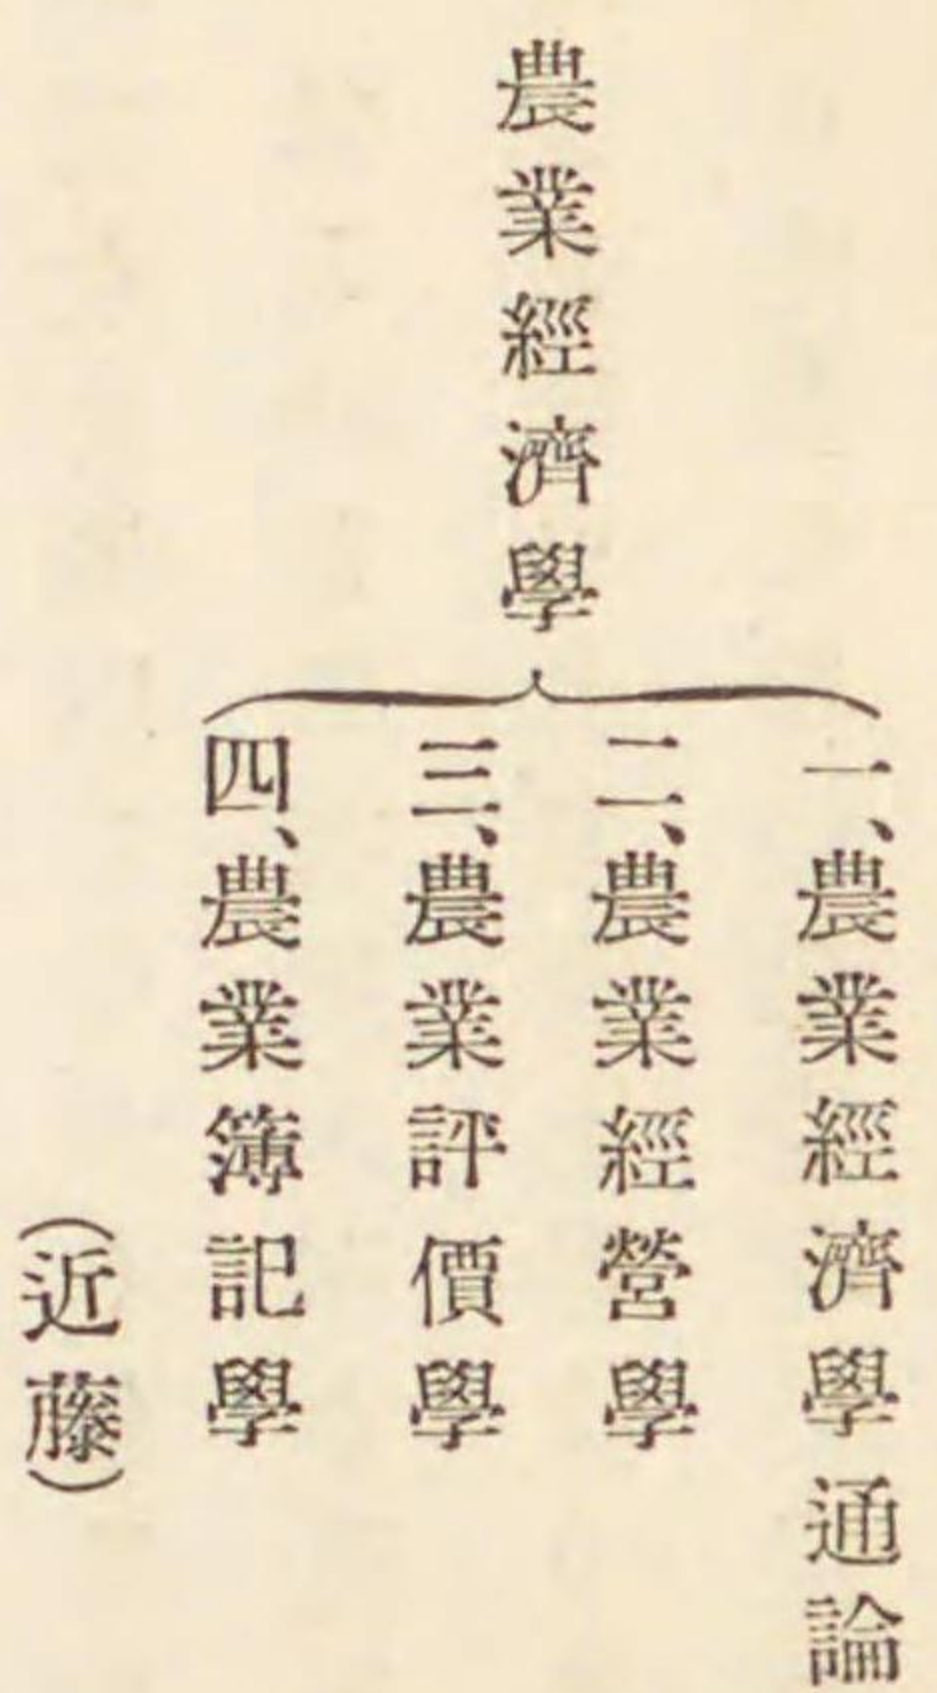 農業經濟學
一、農業經濟學通論
二、農業經營學
三、農業評價學
四、農業簿記學
(近藤)